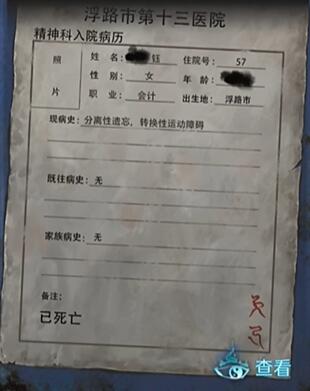 浮路市第十三医院
精神科入院病历
照片
姓名: 钰 住院号: 57
性别: 女 年龄:
职业: 会计 出生地: 浮路市
现病史: 分离性遗忘，转换性运动障碍
既往病史: 无
家族病史: 无
备注:
已死亡
查看